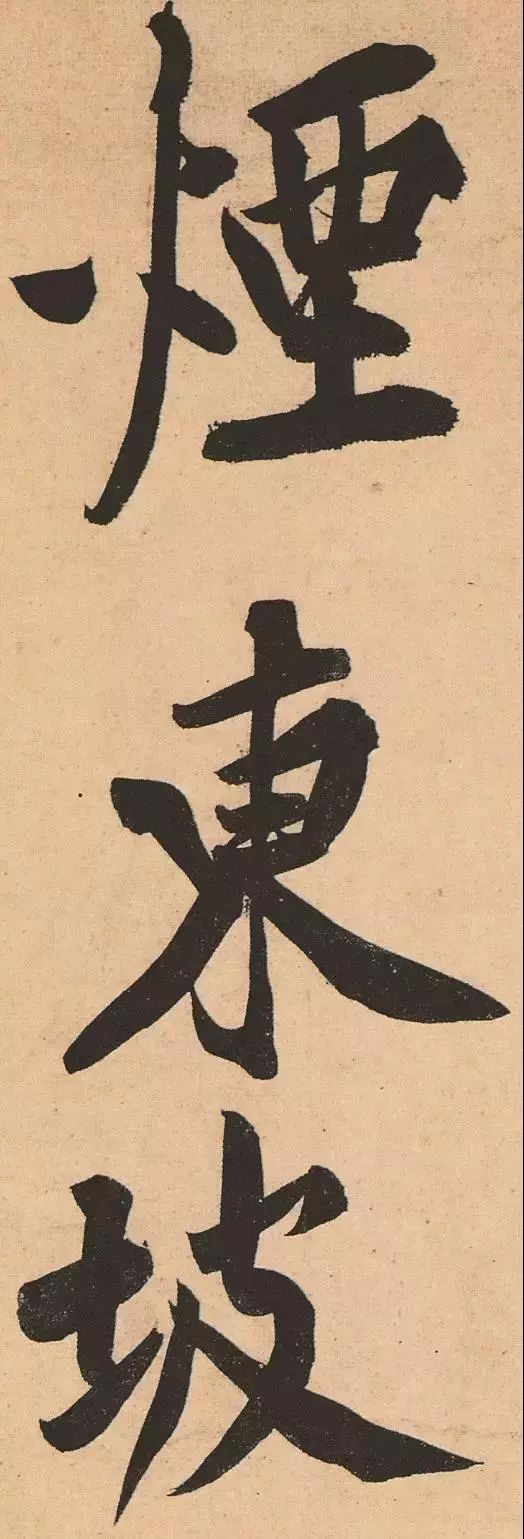 煙東坡